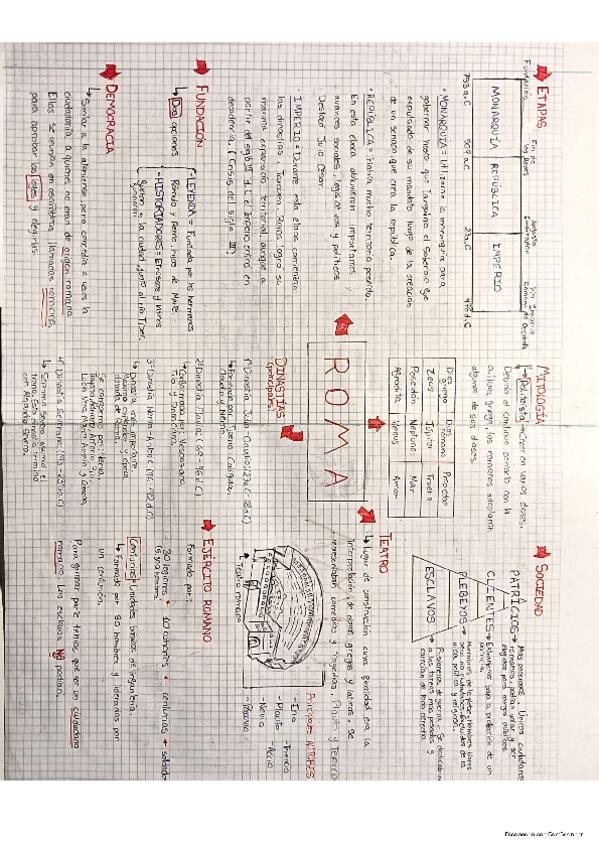 ETAPAS
Fundación
Fin de los Reyes
Augusto Emperador
Fin Imperio Romano de Occidente
MONARQUÍA REPÚBLICA IMPERIO
753 a.C 509 a.C 27a.C 476 d.C
• MONARQUÍA = Utilizaron la monarquía para
gobernar hasta que Tarquino el Soberbio fue
expulsado de su mandato luego de la creación
de un senado que creó la república.
• REPÚBLICA = Había mucho territorio perdido.
En esta época obtuvieron importantes
avances sociales, legislativos y políticos
Destacó Julio César.
• IMPERIO = Durante esta etapa comienzan
las dinastías. También Roma logró su
máxima expansión territorial aunque a
partir del siglo III d.C el Imperio entró en
decadencia (Crisis del siglo III)
FUNDACIÓN
↳ Dos opciones
- LEYENDA = Fundada por los hermanos
Rómulo y Remo, hijos de Marte.
- HISTORIADORES = Etruscos y latinos
la ciudad junto al río Tíber.
DEMOCRACIA
↳ Similar a la ateniense pero concedía a veces la
ciudadanía a quienes no eran de origen romano
Ellos se reunían en asambleas llamadas comicios,
para aprobar las leyes y elegirlas.
MITOLOGÍA
↳ Politeísta → Creer en varios dioses.
Debido al continuo contacto con la
cultura griega, los romanos adoptaron
algunos de sus dioses.
Dios griego Dios romano Protector
Zeus Júpiter Trueno
Poseidón Neptuno Mar
Afrodita Venus Amor
ROMA
DINASTÍAS
(principales)
1º Dinastía Julio-Claudio
↳ Formada por: Tiberio, Calígula,
Claudio y Nerón.
2º Dinastía Flavia (69-96 d.C)
↳ Conformada por: Vespasiano,
Tito y Domiciano.
3º Dinastía Nerva-Antonina
↳ Dinastía más importante
Máximo esplendor y época
dorada de Roma.
Se conformó por: Nerva,
Trajano, Adriano, Antonio Pío,
Lucio Vero, Marco Aurelio y Cómodo.
4º Dinastía Severa
↳ Septimio Severo asumió el
trono. Esta dinastía terminó
con Alejandro Severo.
SOCIEDAD
PATRICIOS
CLIENTES
PLEBEYOS
ESCLAVOS
Prisioneros de guerra. Se dedicaban
a las tareas más pesadas y
carecían de todo derecho.
TEATRO
↳ Lugar de construcción cuya finalidad era la
interpretación de obras griegas y latinas. Se
representaban comedias y tragedias. Plauto y Terencio
↳ Teatro romano
PRINCIPALES AUTORES
- Enio
- Terencio
- Plauto
- Accio
- Nevio
- Pacuvio
EJÉRCITO ROMANO
Formado por:
30 legiones ← 10 cohortes ← centurias ← soldados
Centurias: Unidades básicas de infantería.
↳ Formado por 80 hombres y lideradas por
un centurión.
Para formar parte tenías que ser un ciudadano
romano. Los esclavos No podían.